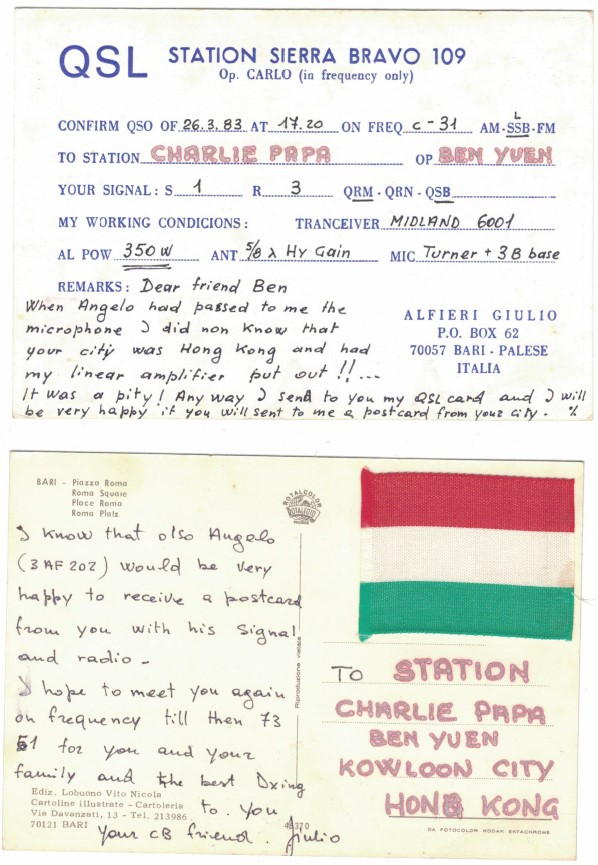 QSL STATION SIERRA BRAVO 109
Op. CARLO (in frequency only)
CONFIRM QSO OF 26.3.83 AT 17.20 ON FREQ C-31 AM-SSB-FM
L
TO STATION CHARLIE PAPA OP BEN YUEN
YOUR SIGNAL: S 1 R 3 QRM - QRN - QSB
MY WORKING CONDICIONS: TRANCEIVER MIDLAND 6001
AL POW 350 W ANT 5/8 λ Hy Gain MIC Turner + 3 B base
REMARKS: Dear friend Ben
When Angelo had passed to me the
microphone I did non know that
your city was Hong Kong and had
my linear amplifier put out !!...
It was a pity! Any way I send to you my QSL card and I will
be very happy if you will sent to me a postcard from your city. %
ALFIERI GIULIO
P.O. BOX 62
70057 BARI - PALESE
ITALIA
BARI - Piazza Roma
Roma Square
Place Roma
Roma Platz
ROTALCOLOR
ROTALFOTO
I know that also Angelo
(3 AF 202) would be very
happy to receive a postcard
from you with his signal
and radio -
I hope to meet you again
on frequency till then 73
51 for you and your
family and the best Dxing
to you
Your CB friend. Giulio
Ediz. Lobuono Vito Nicola
Cartoline illustrate - Cartoleria
Via Davanzati, 13 - Tel. 213986
70121 BARI
Riproduzione vietata
TO STATION
CHARLIE PAPA
BEN YUEN
KOWLOON CITY
HONG KONG
DA FOTOCOLOR KODAK EKTACHROME